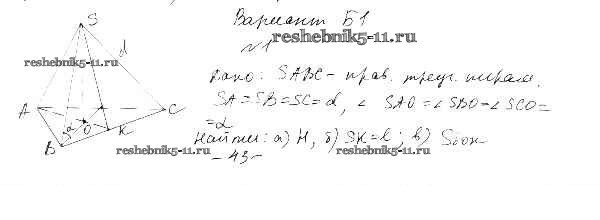 Вариант Б1
№1
reshebnik5-11.ru
S
d
reshebnik5-11.ru
Дано: SABC – прав. треуг. пирам.
A
C
SA=SB=SC=d, ∠ SAO=∠SBO=∠SCO=
=α
α
O
K
B
Найти: а) H, б) SK=l; в) Sбок
reshebnik5-11.ru
reshebnik5-11.ru
– 43 –